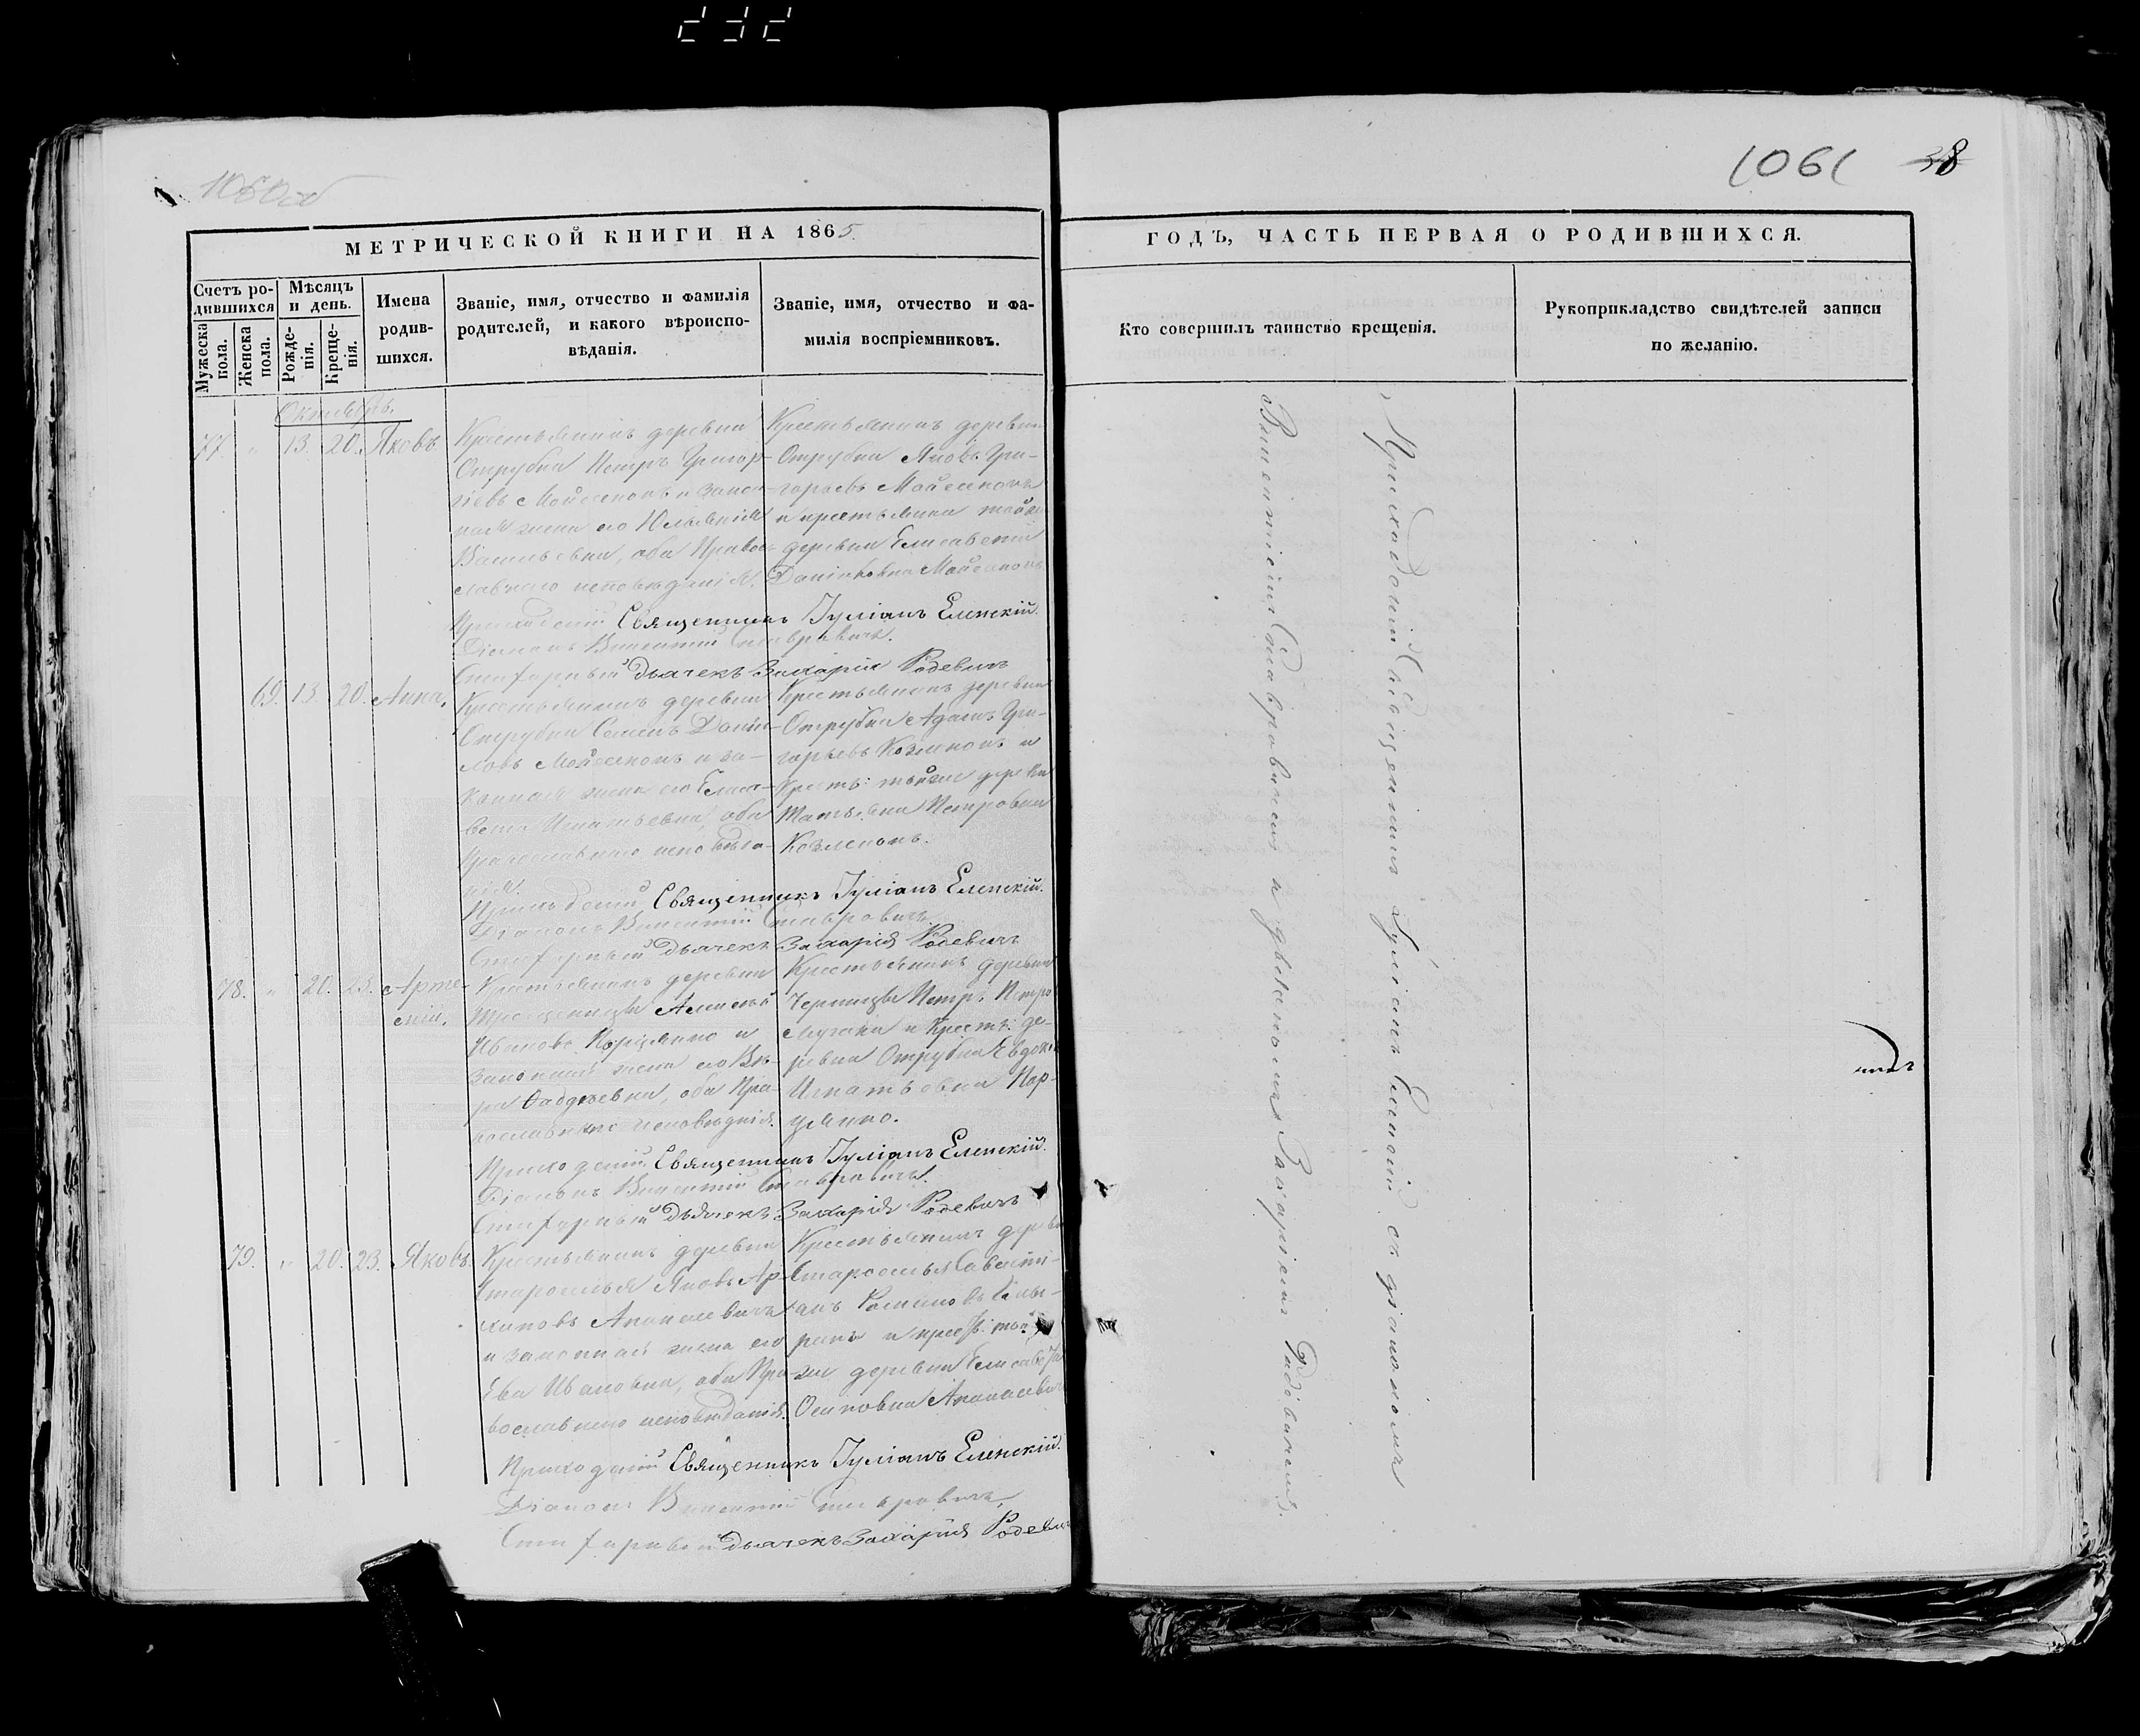 1060об
1061 38
МЕТРИЧЕСКОЙ КНИГИ НА 1865.
ГОДЪ, ЧАСТЬ ПЕРВАЯ О РОДИВШИХСЯ.
Счетъ ро-
дившихся
Мужеска пола.
Женска пола.
Мѣсяцъ
и день.
Рожде-
нія.
Креще-
нія.
Имена
родив-
шихся.
Званіе, имя, отчество и фамилія
родителей, и какого вѣроиспо-
вѣданія.
Званіе, имя, отчество и фа-
милія воспріемниковъ.
Кто совершилъ таинство крещенія.
Рукоприкладство свидѣтелей записи
по желанію.
Октябрь.
77. " 13. 20. Яковъ
Крестьянинъ деревни
Отрубка Петръ Григор-
іевъ Мойсеенокъ и закон-
ная жена его Юліянія
Васильевна, оба Правос-
лавнаго исповѣданія.
Крестьянинъ деревни
Отрубка Яковъ Гри-
горьевъ Мойсеенокъ
и крестьянка той же
деревни Елисавета
Даниловна Мойсеенокъ
Приходскій Священникъ Іуліанъ Еленскій.
Діаконъ Викентій Ставровичъ.
Стихарный Дьячекъ Захарія Родевичъ
69. 13. 20. Анна.
Крестьянинъ деревни
Отрубка Семенъ Дани-
ловъ Мойсеенокъ и за-
конная жена его Елиса-
вета Игнатьевна, оба
Православнаго исповѣда-
нія.
Крестьянинъ деревни
Отрубка Адамъ Гри-
горьевъ Козленокъ и
Крест: той же деревни
Татьяна Петровна
Козленокъ.
Приходскій Священникъ Іуліанъ Еленскій.
Діаконъ Викентій Ставровичъ
Стихарный Дьячекъ Захарія Родевичъ
78. " 20. 23. Арте-
мій.
Крестьянинъ деревни
Алексѣй
Ивановъ и
законная жена его Вѣ-
ра Фадѣевна, оба Пра-
вославнаго исповѣданія.
Крестьянинъ деревни
Петръ Петро
и Крест: де-
ревни Отрубка Евдокія
Игнатьовна Пар-
Приходскій Священникъ Іуліанъ Еленскій.
Діаконъ Викентій Ставровичъ.
Стихарный Дьячекъ Захарія Родевичъ
79. " 20. 23. Яковъ.
Крестьянинъ деревни
Староселья Яковъ Ар-
хиповъ Апанасевичъ
и законная жена его
Ева Ивановна, оба Пра-
вославнаго исповѣданія.
Крестьянинъ деревни
Староселья
и крест: той
же деревни Елисавета
Осиповна Апанасевичъ
Приходскій Священникъ Іуліанъ Еленскій.
Діаконъ Викентій Ставровичъ,
Стихарный Дьячекъ Захарія Родевичъ
Приходскій Священникъ Іуліанъ Еленскій съ діакономъ
Викентіемъ Ставровичемъ и дьячкомъ Захаріемъ Родевичемъ.